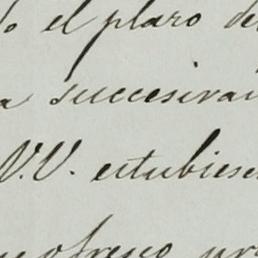 el plazo de
succesivam
V.V. estubiese
ofresco